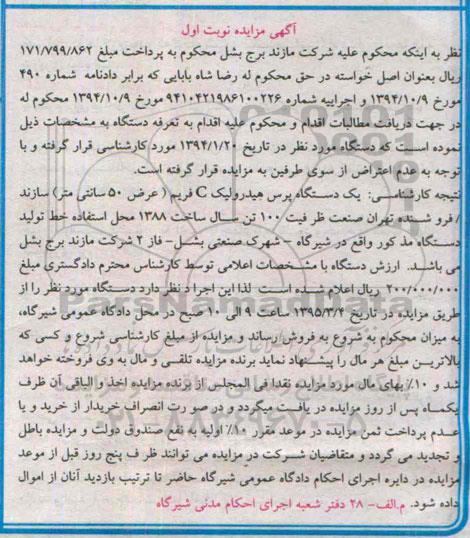 آگهی مزایده نوبت اول
نظر به اینکه محکوم علیه شرکت مازند برج بشل محکوم به پرداخت مبلغ ۱۷۱/۷۹۹/۸۶۲
ریال بعنوان اصل خواسته در حق محکوم له رضا شاه بابایی که برابر دادنامه شماره ۴۹۰
مورخ ۱۳۹۴/۱۰/۹ و اجراییه شماره ۹۴۱۰۴۲۱۹۸۶۱۰۰۲۲۶ مورخ ۱۳۹۴/۱۰/۹ محکوم له
در جهت دریافت مطالبات اقدام و محکوم علیه اقدام به تعرفه دستگاه به مشخصات ذیل
نموده است که دستگاه مورد نظر در تاریخ ۱۳۹۴/۱/۲۰ مورد کارشناسی قرار گرفته و با
توجه به عدم اعتراض از سوی طرفین به مزایده قرار گرفته است.
نتیجه کارشناسی: یک دستگاه پرس هیدرولیک C فریم (عرض ۵۰ سانتی متر) سازند
/ فرو شنده تهران صنعت ظر فیت ۱۰۰ تن سال ساخت ۱۳۸۸ محل استفاده خط تولید
دستگاه مذ کور واقع در شیرگاه - شهرک صنعتی بشل- فاز ۲ شرکت مازند برج بشل
می باشد. ارزش دستگاه با مشخصات اعلامی توسط کارشناس محترم دادگستری مبلغ
۲۰۰/۰۰۰/۰۰۰ ریال اعلام شده است لذا این اجرا د نظر دارد دستگاه مورد نظر را از
طریق مزایده در تاریخ ۱۳۹۵/۳/۴ ساعت ۹ الی ۱۰ صبح در محل دادگاه عمومی شیرگاه،
به میزان محکوم به شروع به فروش رساند و مزایده از مبلغ کارشناسی شروع و کسی که
بالاترین مبلغ هر مال را پیشنهاد نماید برنده مزایده تلقی و مال به وی فروخته خواهد
شد و ۱۰٪ بهای مال مورد مزایده نقدا فی المجلس از برنده مزایده اخذ و الباقی آن ظرف
یکماه پس از روز مزایده در یافت میگردد و در صو رت انصراف خریدار از خرید و یا
عدم پرداخت ثمن مزایده در موعد مقرر ۱۰٪ اولیه به نفع صندوق دولت و مزایده باطل
و تجدید می گردد و متقاضیان شرکت در مزایده می توانند ظر ف پنج روز قبل از موعد
مزایده در دایره اجرای احکام دادگاه عمومی شیرگاه حاضر تا ترتیب بازدید آنان از اموال
داده شود. م.الف- ۲۸ دفتر شعبه اجرای احکام مدنی شیرگاه
ParsNamadData